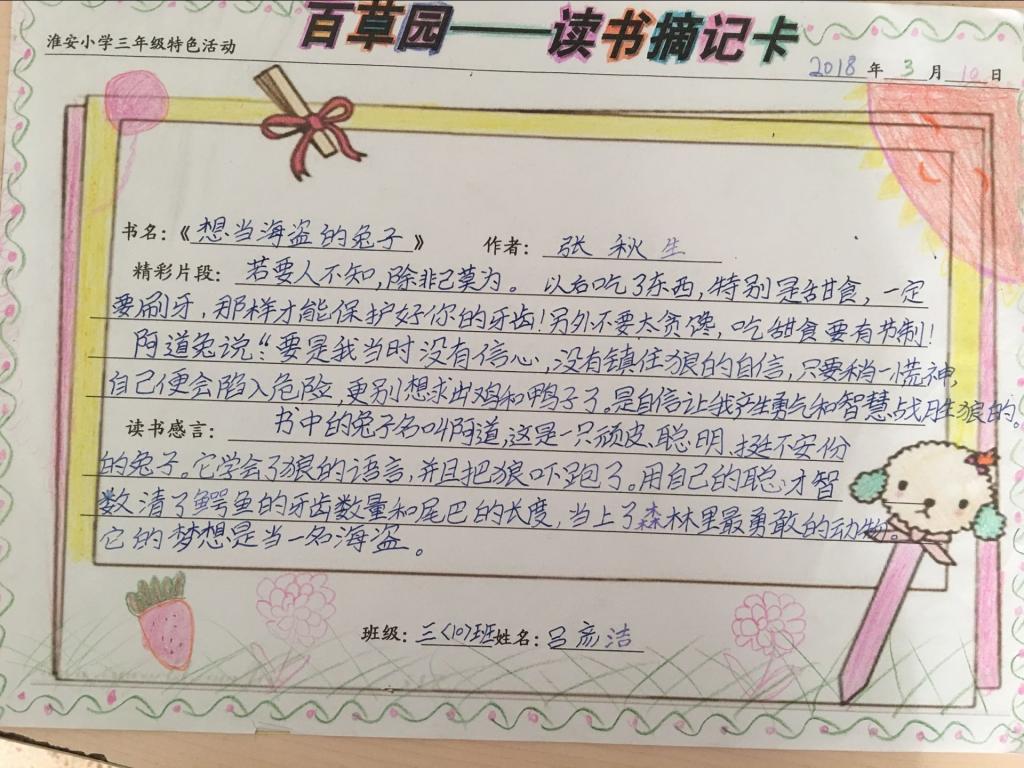 百草园——读书摘记卡
淮安小学三年级特色活动
2018年3月10日
书名：《想当海盗的兔子》 作者：张秋生
精彩片段：若要人不知，除非己莫为。以后吃了东西，特别是甜食，一定
要刷牙，那样才能保护好你的牙齿！另外不要太贪馋，吃甜食要有节制！
阿道兔说：“要是我当时没有信心，没有镇住狼的自信，只要稍一慌神，
自己便会陷入危险，更别想求出鸡和鸭子了。是自信让我产生勇气和智慧战胜狼的。
读书感言：书中的兔子名叫阿道，这是一只顽皮、聪明、挺不安份
的兔子。它学会了狼的语言，并且把狼吓跑了。用自己的聪才智
数清了鳄鱼的牙齿数量和尾巴的长度，当上了森林里最勇敢的动物。
它的梦想是当一名海盗。
班级：三〈10〉班姓名：吕彦洁